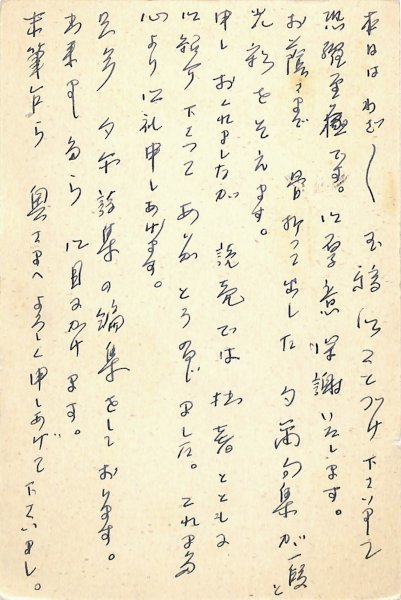 本日はわざ〱玉稿御ことづけ下さいまして
恐縮至極です。御厚意深謝いたします。
お蔭さまで 骨折って出した 句集が一段と
光彩をそえます。
申しおくれましたが 読売では拙著とともに
御紹介下さって ありがとう存じました。これまた
心より御礼申しあげます。
只今 詩集の編集をしております。
出来ましたら 御目にかけます。
末筆乍ら 奥さまへよろしく申しあげて下さいまし。